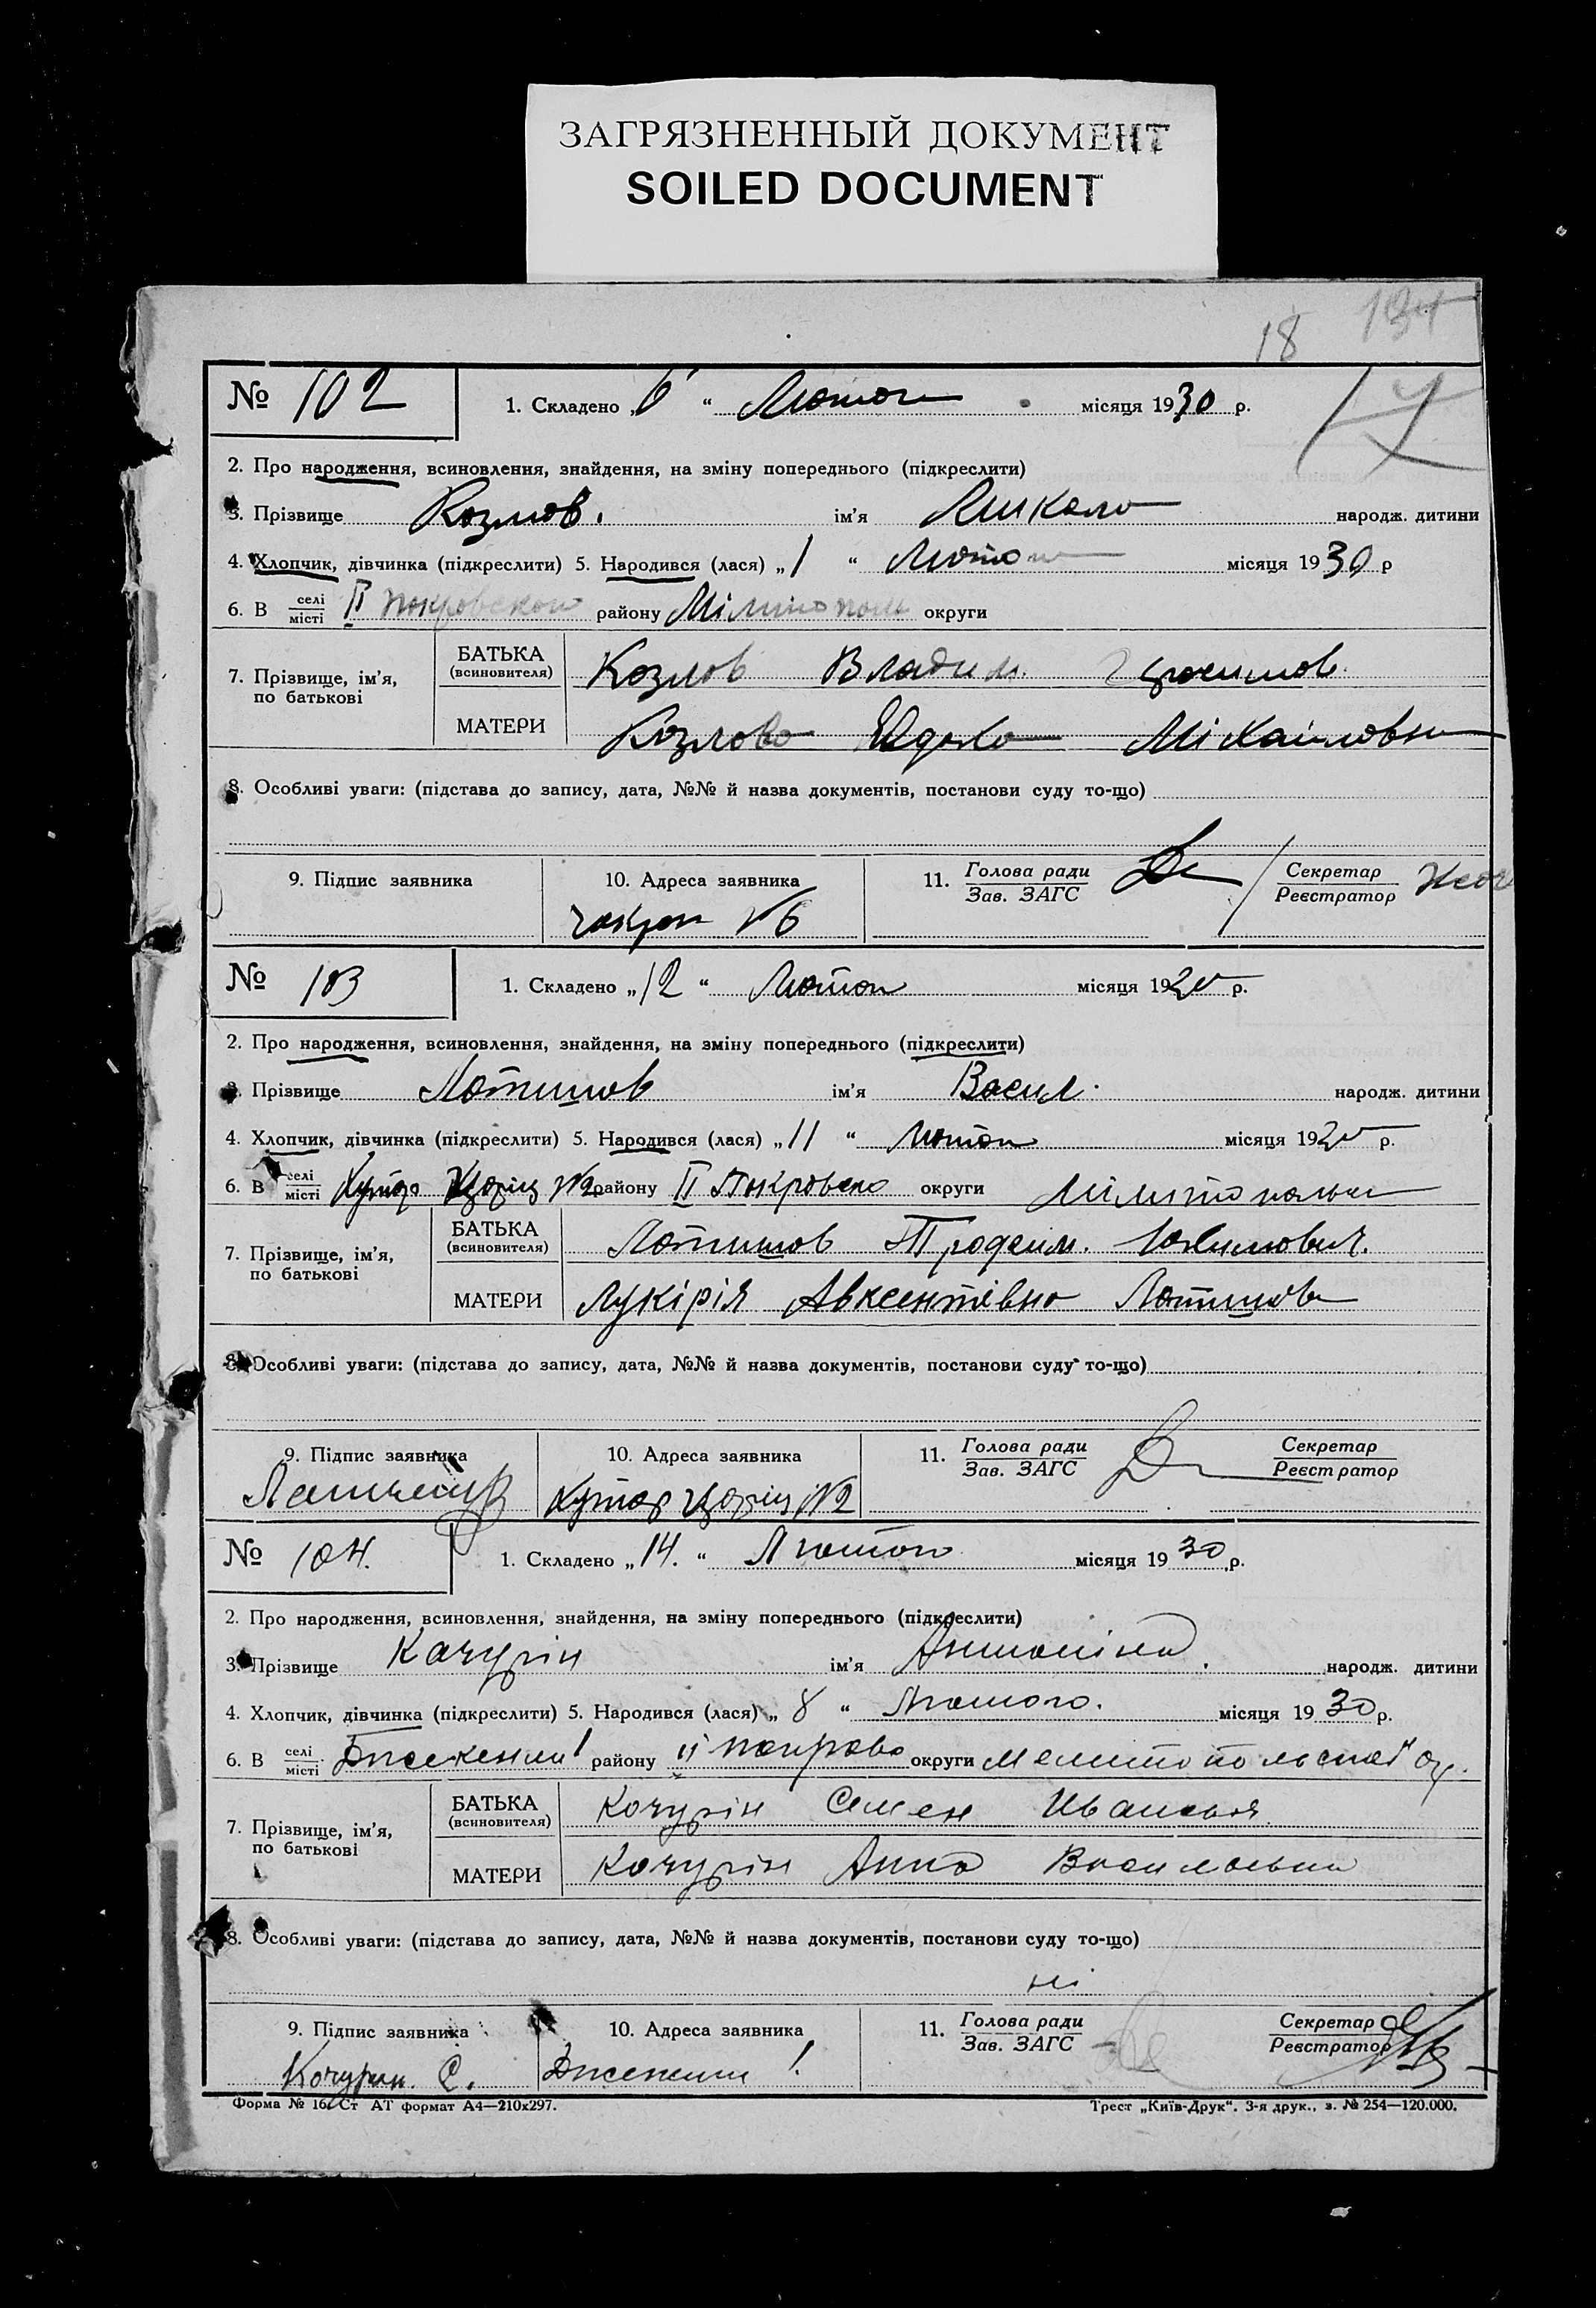 ЗАГРЯЗНЕННЫЙ ДОКУМЕНТ
SOILED DOCUMENT
18 134
№ 102 1. Складено „6“ Лютого місяця 1930 р.
2. Про народження, всиновлення, знайдення, на зміну попереднього (підкреслити)
3. Прізвище Козлов. ім'я Микола народж. дитини
4. Хлопчик, дівчинка (підкреслити) 5. Народився (лася) „1“ Лютого місяця 1930 р
6. В селі/місті ІІ Покровском району округи
7. Прізвище, ім'я, по батькові
БАТЬКА (всиновителя) Козлов Владим.
МАТЕРИ Козлова Міхаіловна
8. Особливі уваги: (підстава до запису, дата, №№ й назва документів, постанови суду то-що)
9. Підпис заявника 10. Адреса заявника 11. Голова ради/Зав. ЗАГС Секретар/Реєстратор
№6
№ 103 1. Складено „12“ Лютого місяця 19 р.
2. Про народження, всиновлення, знайдення, на зміну попереднього (підкреслити)
3. Прізвище Латишов ім'я Васил. народж. дитини
4. Хлопчик, дівчинка (підкреслити) 5. Народився (лася) „11“ лютого місяця 19 р.
6. В селі/місті Хутор №2 району ІІ Покровско округи
7. Прізвище, ім'я, по батькові
БАТЬКА (всиновителя) Латишов Юхимович.
МАТЕРИ Лукірія Авксентівна Латишова
8. Особливі уваги: (підстава до запису, дата, №№ й назва документів, постанови суду то-що)
9. Підпис заявника 10. Адреса заявника 11. Голова ради/Зав. ЗАГС Секретар/Реєстратор
Хутор №2
№ 104. 1. Складено „14.“ Лютого місяця 1930 р.
2. Про народження, всиновлення, знайдення, на зміну попереднього (підкреслити)
3. Прізвище Качурін ім'я Антоніна. народж. дитини
4. Хлопчик, дівчинка (підкреслити) 5. Народився (лася) „8“ Лютого. місяця 1930 р.
6. В селі/місті району ІІ покровс округи
7. Прізвище, ім'я, по батькові
БАТЬКА (всиновителя) Качурін Семен Иванович
МАТЕРИ Качурін Анна Васильевна
8. Особливі уваги: (підстава до запису, дата, №№ й назва документів, постанови суду то-що)
ні
9. Підпис заявника 10. Адреса заявника 11. Голова ради/Зав. ЗАГС Секретар/Реєстратор
Качурин. С.
Форма № 16. Ст АТ формат А4—210х297. Трест „Київ-Друк“. 3-я друк., з. № 254—120.000.